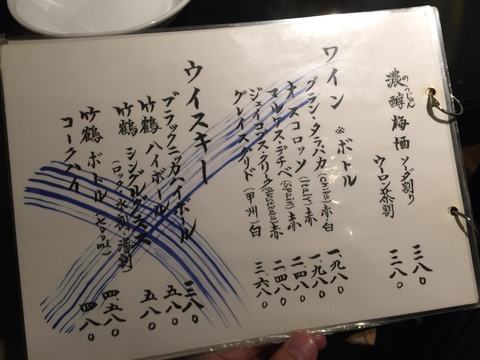 濃醇梅酒 ソーダ割り 三八〇
のうじゅん
ウーロン茶割 三八〇
ワイン ※ボトル
グラン・タラパカ(chile)赤・白 一、九八〇
キオスコロッソ(Italy)赤 一、九八〇
(spain)赤 二四八〇
ジェイコブス・クリーク 赤 二四八〇
グレイスグリド(甲州)白 三、六八〇
ウイスキー
ブラックニッカハイボール 三八〇
竹鶴 ハイボール 五八〇
竹鶴 シングルグラス 五八〇
(ロック・水割・湯割)
竹鶴 ボトル 七〇〇ml 四、五八〇
コークハイ 四八〇